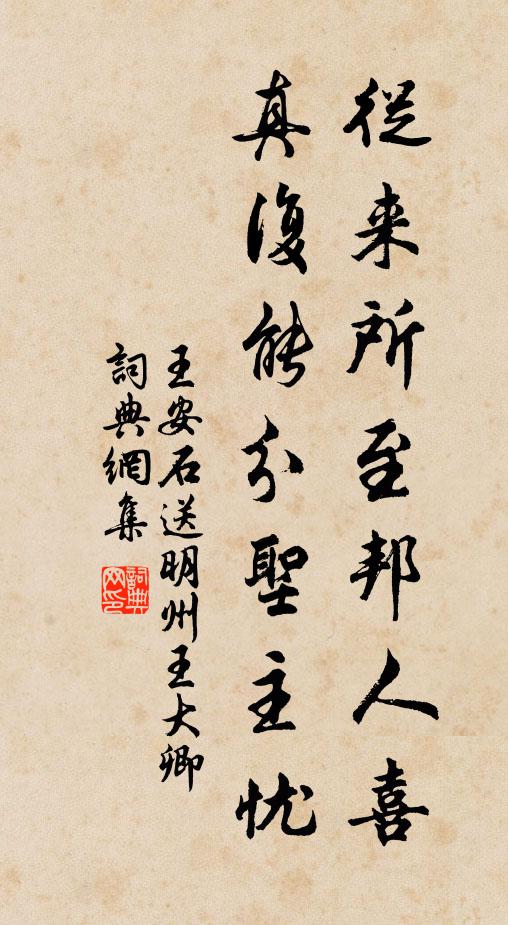 從来所至邦人喜
真復能分聖主忧
王安石送明州王大卿
詞典網集
詞典网印